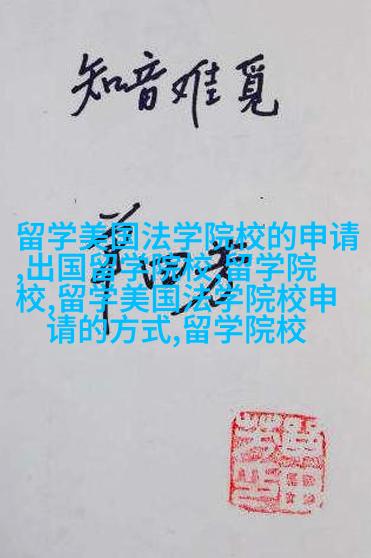 知音难觅
留学美国法学院校的申请
,出国留学院校,留学院
校,留学美国法学院校申
请的方式,留学院校